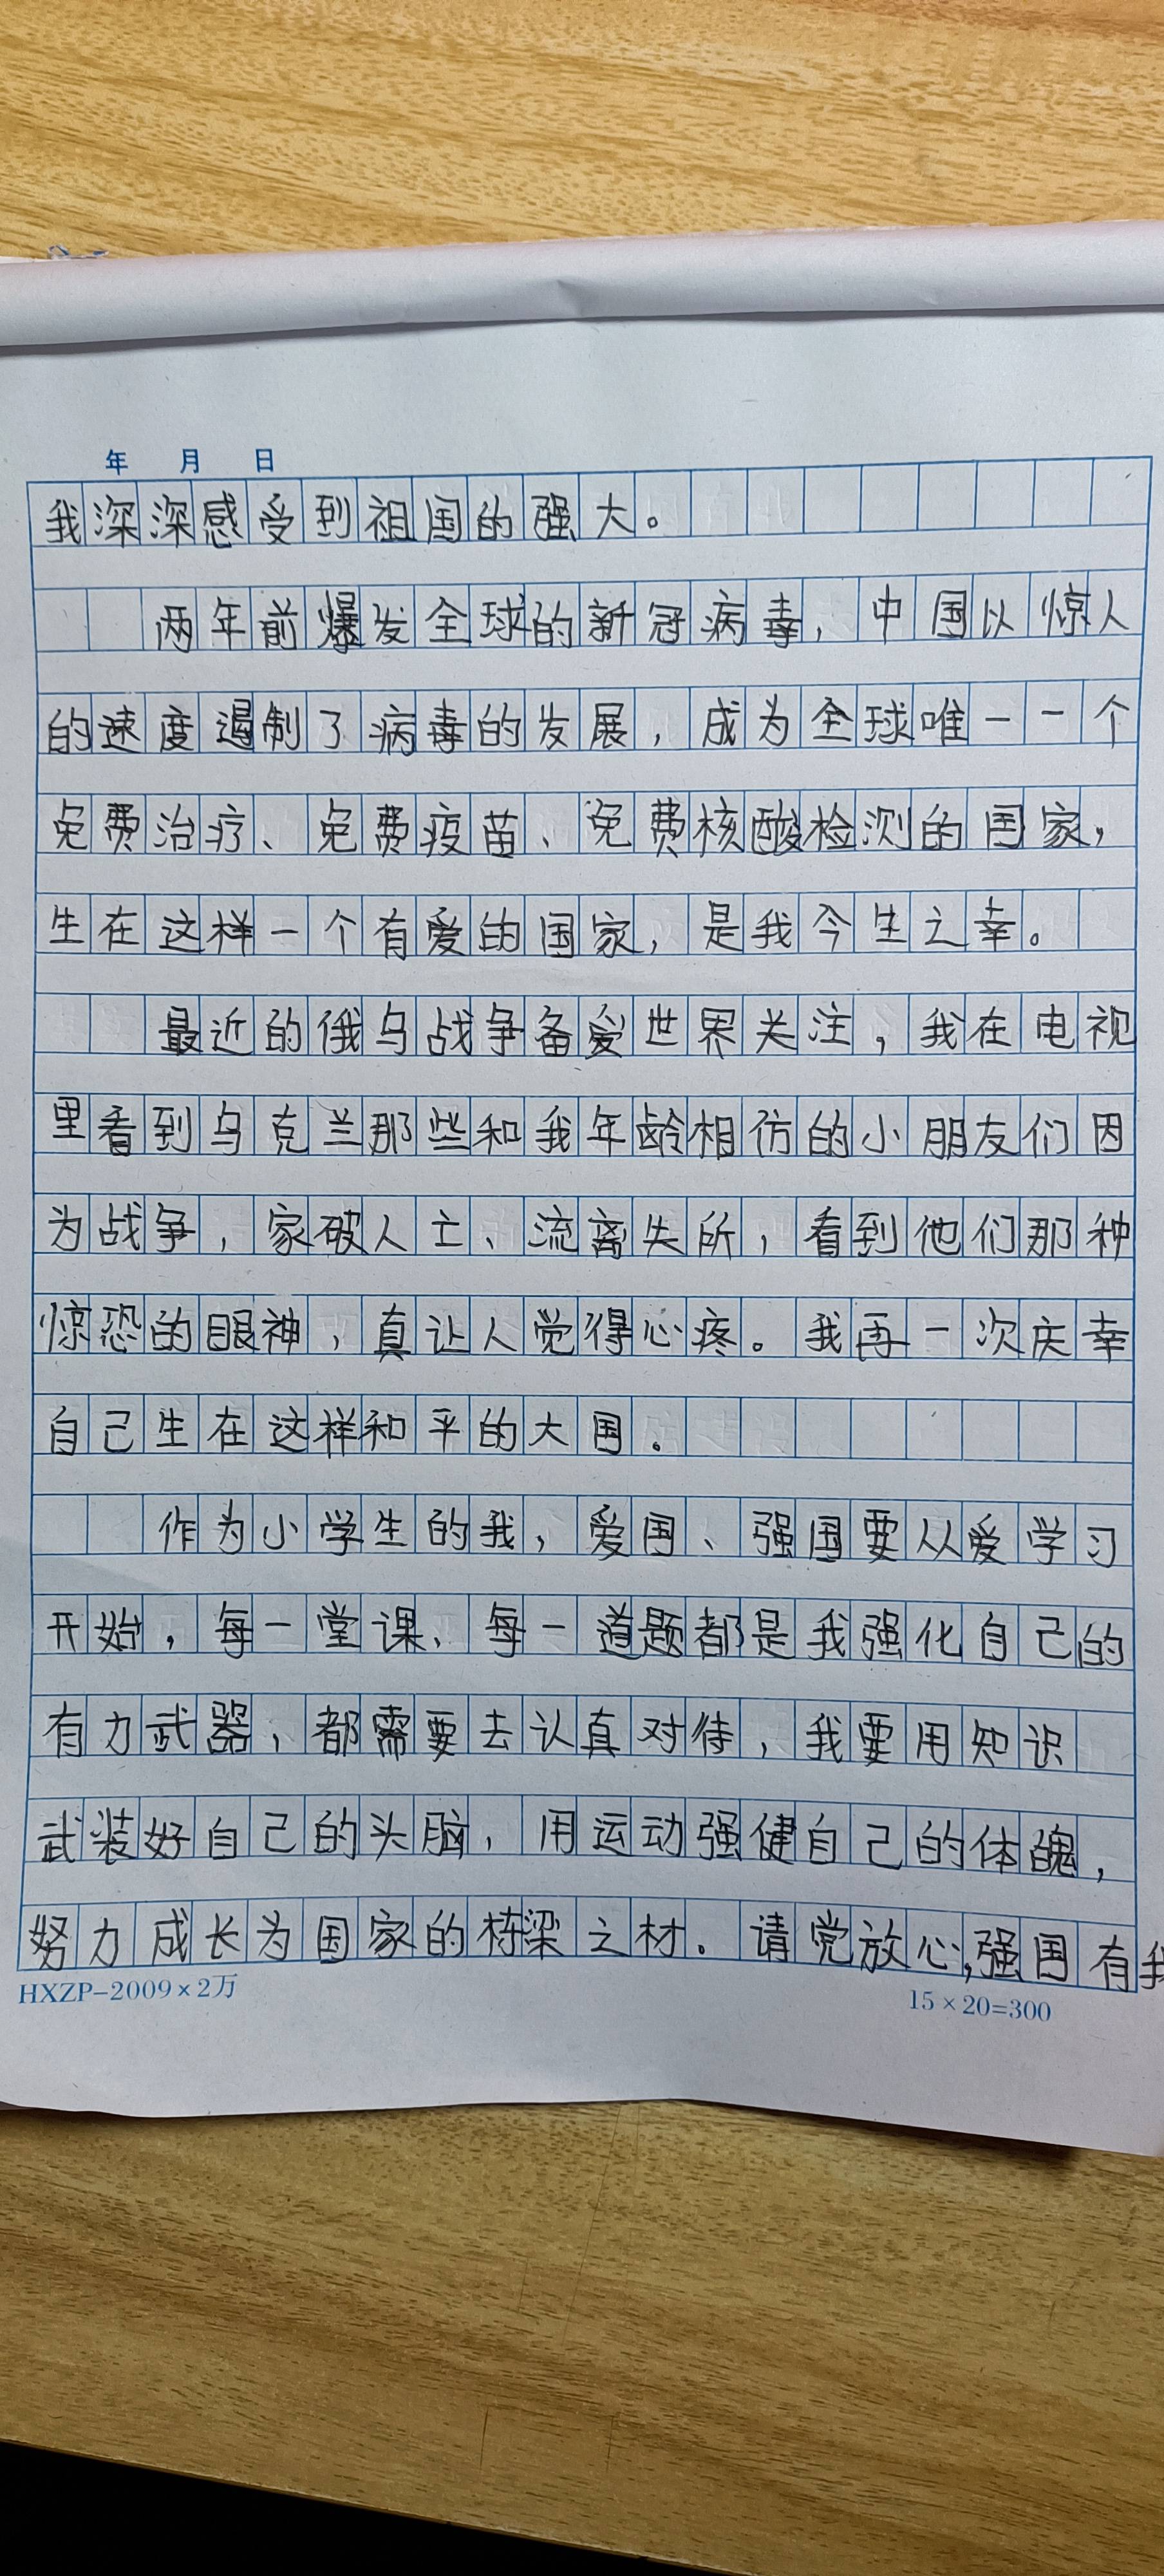 年 月 日
我深深感受到祖国的强大。
两年前爆发全球的新冠病毒，中国以惊人
的速度遏制了病毒的发展，成为全球唯一一个
免费治疗、免费疫苗、免费核酸检测的国家，
生在这样一个有爱的国家，是我今生之幸。
最近的俄乌战争备爱世界关注，我在电视
里看到乌克兰那些和我年龄相仿的小朋友们因
为战争，家破人亡、流离失所，看到他们那种
惊恐的眼神，真让人觉得心疼。我再一次庆幸
自己生在这样和平的大国。
作为小学生的我，爱国、强国要从爱学习
开始，每一堂课、每一道题都是我强化自己的
有力武器，都需要去认真对待，我要用知识
武装好自己的头脑，用运动强健自己的体魄，
努力成长为国家的栋梁之材。请党放心，强国有我
HXZP-2009×2万
15×20=300